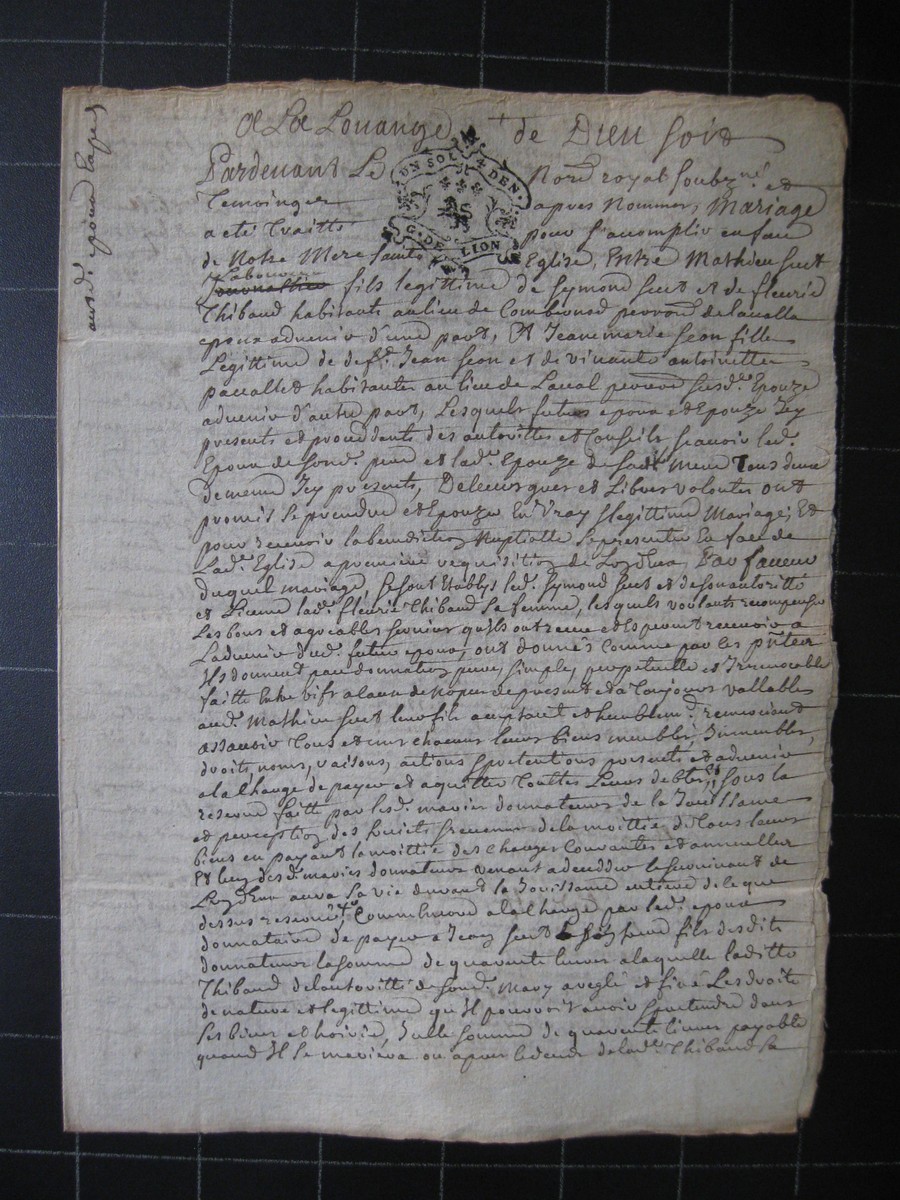 A La Louange de Dieu soit
Pardevant Le No.re royal soubz.né et
Temoings apres Nommes, Mariage
a eté Traitté pour s'acomplir en face
de Notre Mere Sainte Eglise, Entre Mathieu
Laboureur
Journallier fils legittime de Symond et de fleurie
Thibaud habitants au lieu de de lavalla
epoux advenir d'une part, Et Jeanmarie seon fille
Legittime de deft. Jean seon et de vivante antoinette
habitante au lieu de Laval susd.e Epouze
advenir d'autre part, Lesquels futurs epoux et Epouze Icy
presents et procedants des autorittés et Conseils scavoir led.
Epoux de sond. pere et lad.e Epouze de sad.e Mere Tous deux
de meme Icy presents, De leurs grées et Libres volontes ont
promis se prendre et Epouzer En Vray & legittime Mariage, Et
pour recevoir la benediction Nuptialle se presenter En face de
Lad.e Eglise a premiere requisition de L'un d'eux, En faveur
duquel mariage, se sont Etablys led. Symond et de son autoritté
et Licence lad.e fleurie Thibaud sa femme, lesquels voulants recompenser
Les bons et agreables services qu'ils ont receu et Esperent recevoir a
L'advenir dud. futur epoux, ont donnés comme par les p.ntes
Ils donnent par donnation pure, simple, perpetuelle et Irrevocable
faitte Entre vifs a cause de Nopces de present et a Toujours vallable
aud. Mathieu leur fils acceptant et humblem.t remerciant
assavoir Tous et uns chacuns leurs biens meubles, Immeubles,
droits, noms, raisons, actions & pretentions presents et advenir
a la Charge de payer et aquitter Touttes Leurs debtes, Et sous la
reserve faitte par lesd. mariés donnateurs de la Jouissance
et perception des fruits & revenus de la moittié de Tous leurs
biens en payant la moittié des charges Courantes et annuelles
Et l'un desd. mariés donnateurs venant a deceder le survivant de
L'un d'eux aura sa vie durant la Jouissance entiere de ce que
dessus reservé, Comm'encore a la Charge par led. epoux
donnataire de payer a Jean son frere fils desdits
donnateurs la somme de quarente livres a laquelle laditte
Thibaud de l'autoritté de sond. Mary a reglé et fixé Les droits
de nature et legittime qu'il pourroit avoir & pretendre dans
ses biens et hoirie, Icelle somme de quarente livres payable
quand Il se mariera ou apres le deces de lad.e Thibaud sa
UN SOL
G. DE LION
DEN.